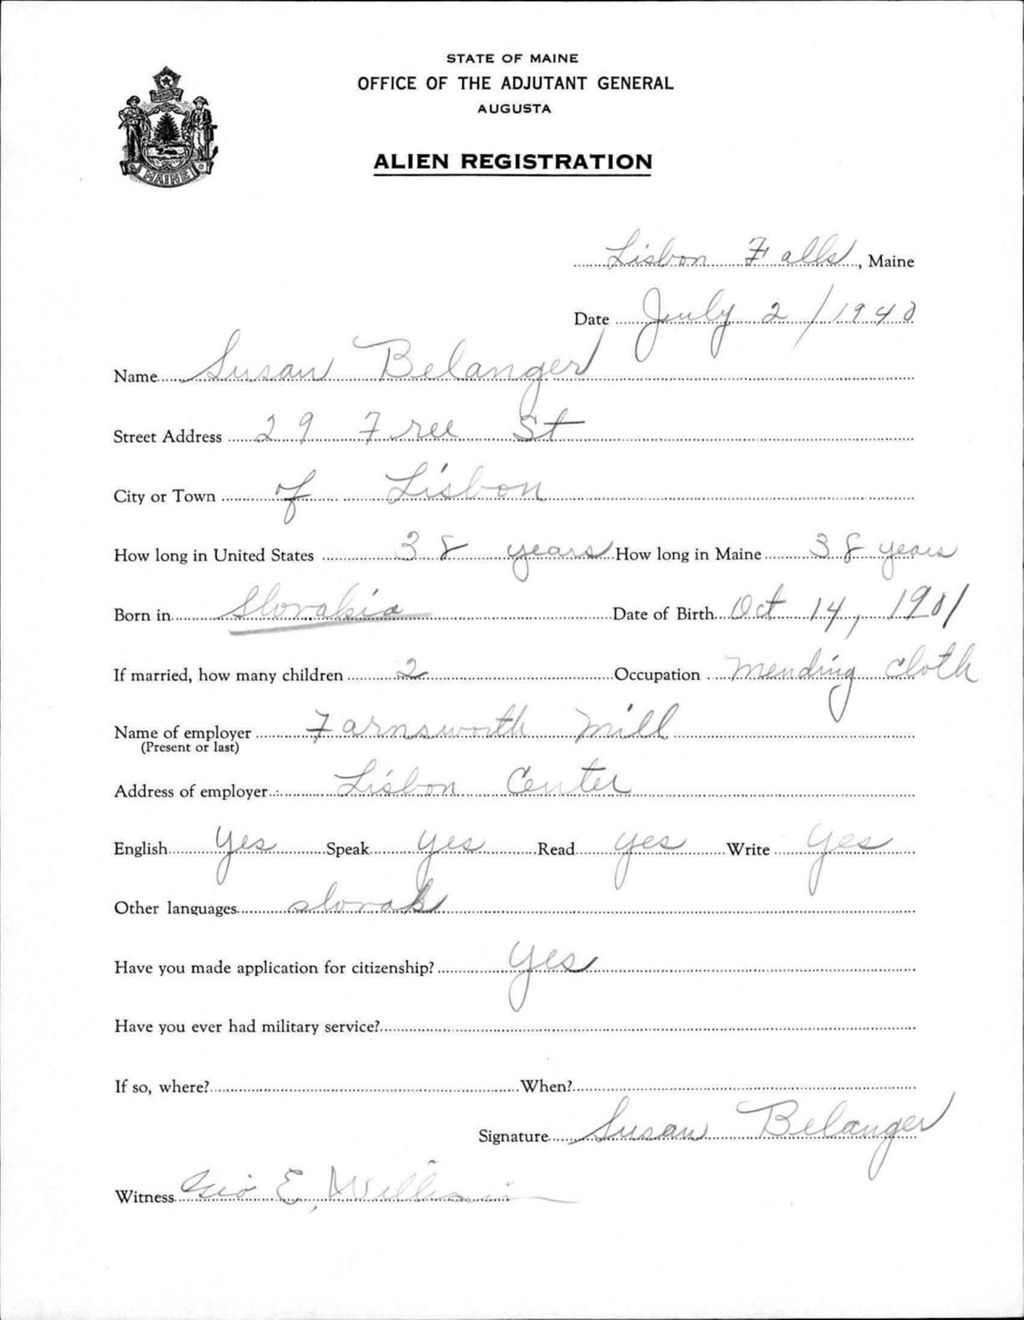 STATE OF MAINE
OFFICE OF THE ADJUTANT GENERAL
AUGUSTA
ALIEN REGISTRATION
MAINE
Lisbon Falls, Maine
Date July 2/1940
Name Susan Belanger
Street Address 29 Free St
City or Town of Lisbon
How long in United States 38 years How long in Maine 38 years
Born in Slovakia Date of Birth Oct 14, 1901
If married, how many children 2 Occupation Mending Cloth
Name of employer Farnsworth Mill
(Present or last)
Address of employer Lisbon Center
English Yes Speak Yes Read Yes Write Yes
Other languages slovak
Have you made application for citizenship? Yes
Have you ever had military service?
If so, where? When?
Signature Susan Belanger
Witness Geo E.